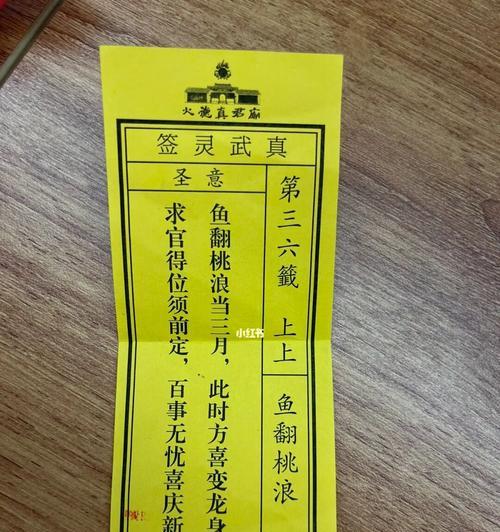 火德真君庙
真武灵签
第三六籤 上上
鱼翻桃浪
圣意
鱼翻桃浪当三月，此时方喜变龙身
求官得位须前定，百事无忧喜庆新
小红书